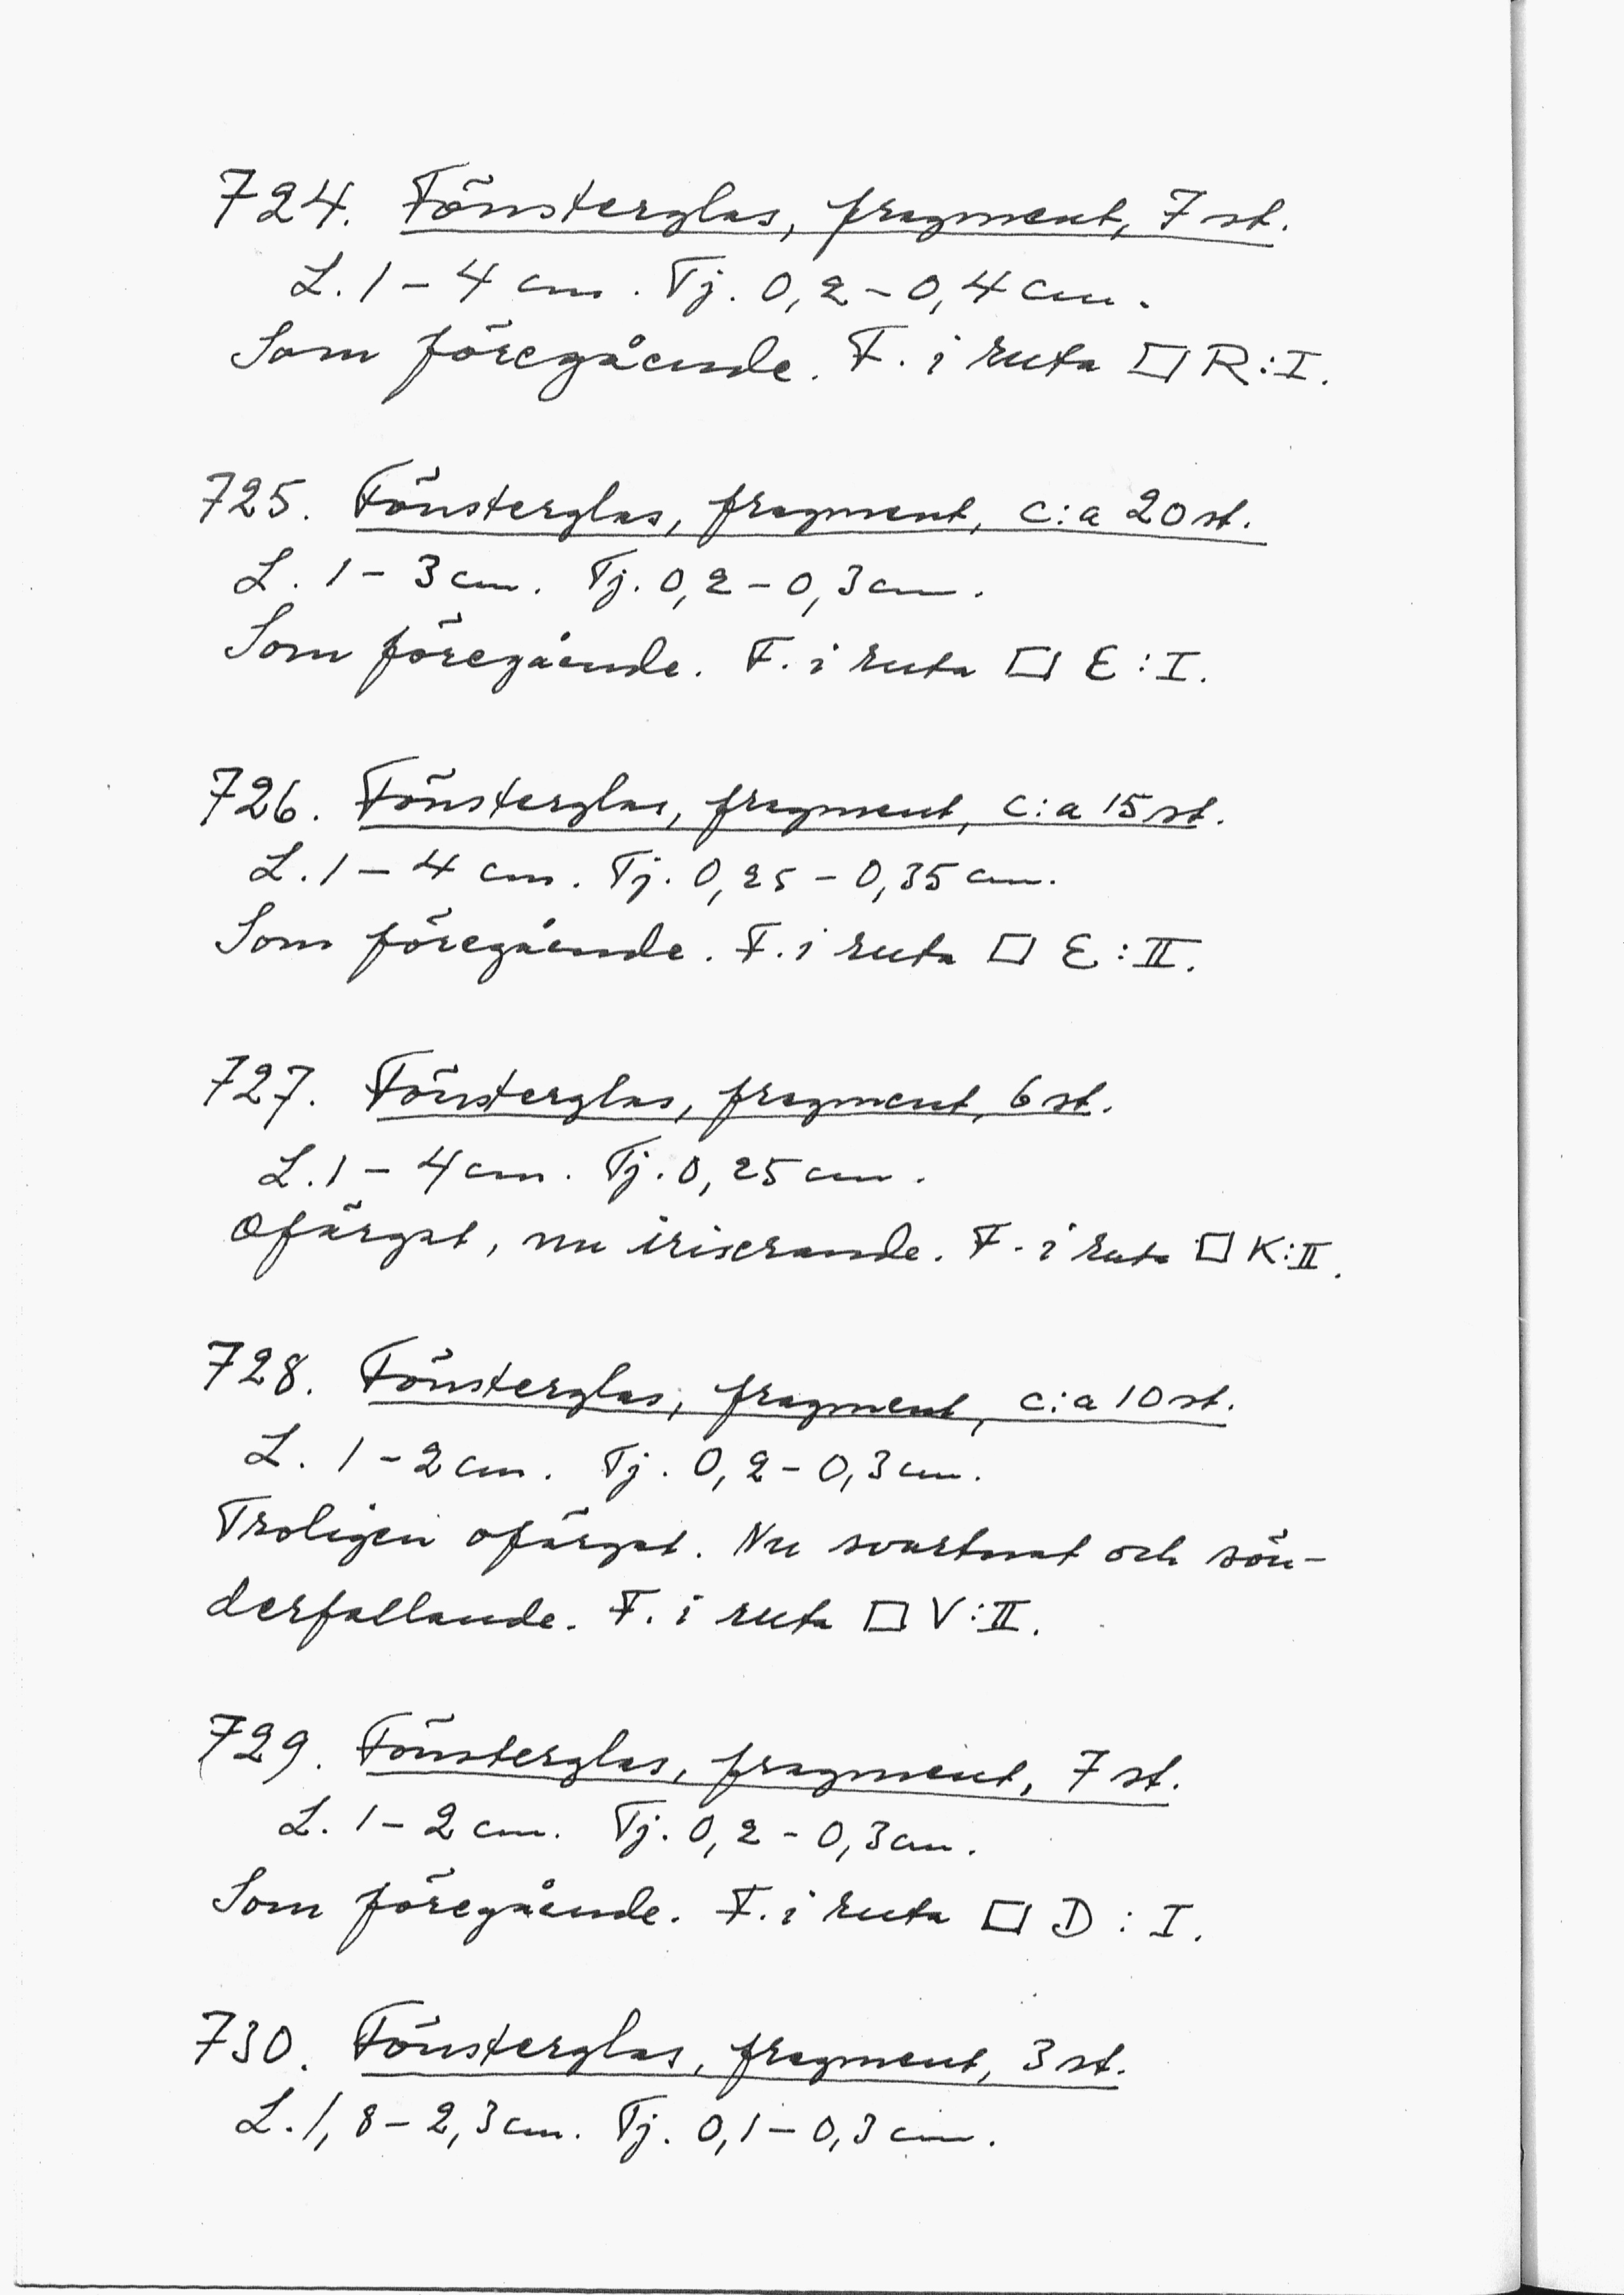 724. Fönsterglas, fragment, 7 st.
L. 1 – 4 cm. Tj. 0,2 – 0,4 cm.
Som föregående. F. i ruta □ R:I.
725. Fönsterglas, fragment, c:a 20 st.
L. 1 – 3 cm. Tj. 0,2 – 0,3 cm.
Som föregående. F. i ruta □ E:I.
726. Fönsterglas, fragment, c:a 15 st.
L. 1 – 4 cm. Tj. 0,25 – 0,35 cm.
Som föregående. F. i ruta □ E:II.
727. Fönsterglas, fragment, 6 st.
L. 1 – 4 cm. Tj. 0,25 cm.
Ofärgat, nu iriserande. F. i ruta □ K:II.
728. Fönsterglas, fragment, c:a 10 st.
L. 1 – 2 cm. Tj. 0,2 – 0,3 cm.
Troligen ofärgat. Nu svartnat och sön-
derfallande. F. i ruta □ V:II.
729. Fönsterglas, fragment, 7 st.
L. 1 – 2 cm. Tj. 0,2 – 0,3 cm.
Som föregående. F. i ruta □ D : I.
730. Fönsterglas, fragment, 3 st.
L. 1,8 – 2,3 cm. Tj. 0,1 – 0,3 cm.